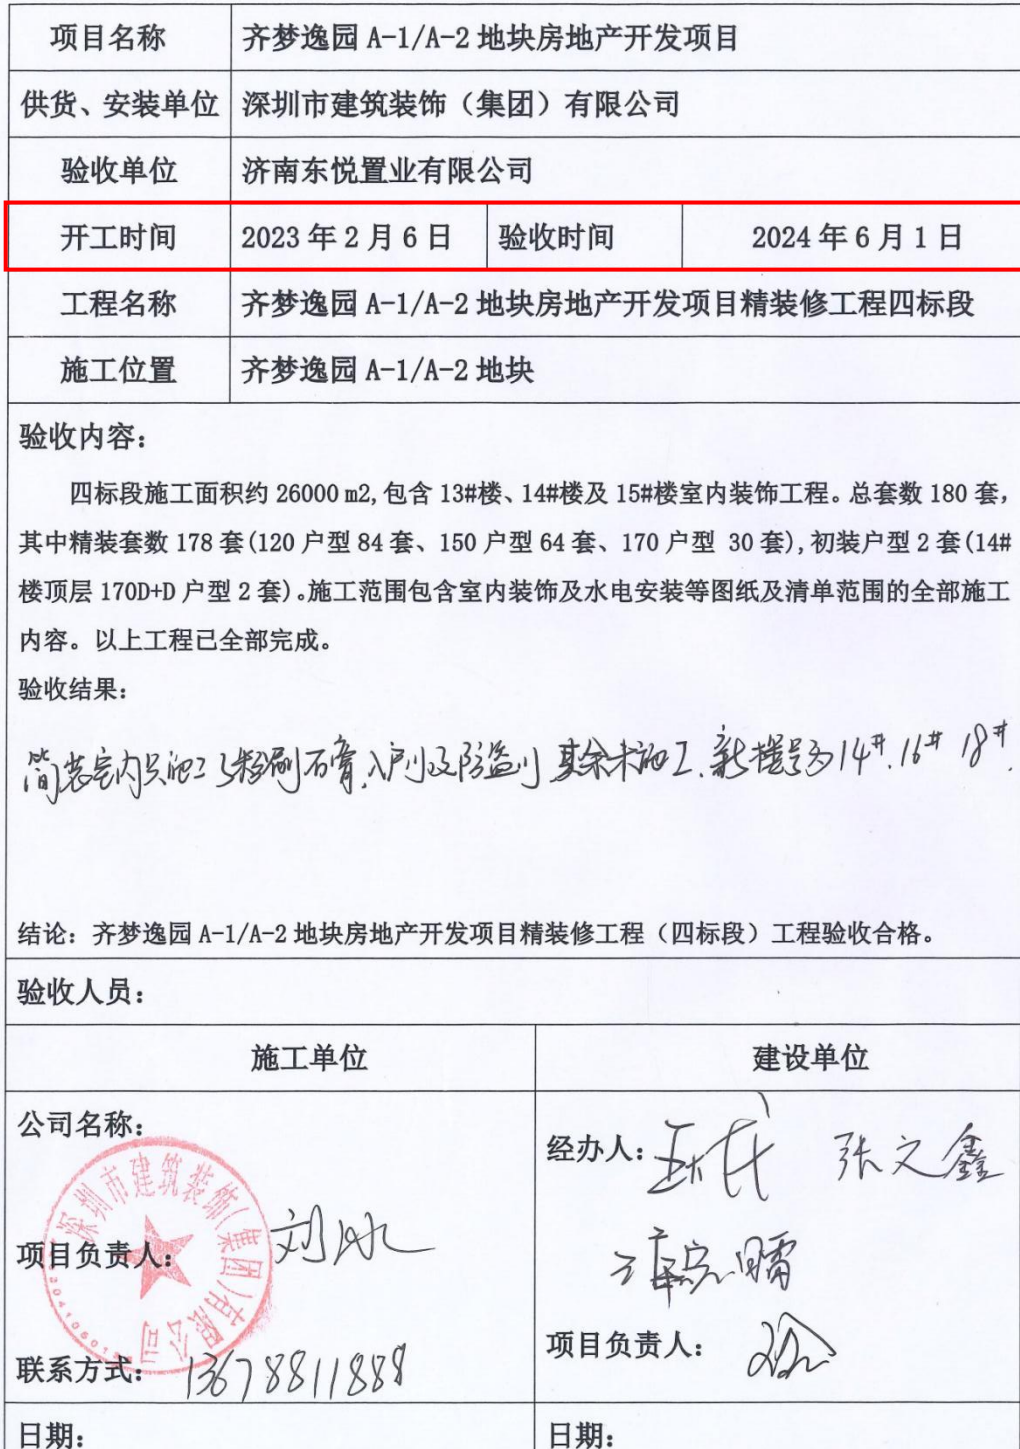 项目名称 齐梦逸园 A-1/A-2 地块房地产开发项目
供货、安装单位 深圳市建筑装饰（集团）有限公司
验收单位 济南东悦置业有限公司
开工时间 2023 年 2 月 6 日 验收时间 2024 年 6 月 1 日
工程名称 齐梦逸园 A-1/A-2 地块房地产开发项目精装修工程四标段
施工位置 齐梦逸园 A-1/A-2 地块
验收内容：
四标段施工面积约 26000 m2,包含 13#楼、14#楼及 15#楼室内装饰工程。总套数 180 套，
其中精装套数 178 套(120 户型 84 套、150 户型 64 套、170 户型 30 套),初装户型 2 套(14#
楼顶层 170D+D 户型 2 套)。施工范围包含室内装饰及水电安装等图纸及清单范围的全部施工
内容。以上工程已全部完成。
验收结果：
简装室内只施工粉刷石膏,入户门及防盗门 其余未施工.新楼号为14#.16# 18#.
结论：齐梦逸园 A-1/A-2 地块房地产开发项目精装修工程（四标段）工程验收合格。
验收人员：
施工单位 建设单位
公司名称：
深圳市建筑装饰(集团)有限公司
经办人： 张文鑫
项目负责人： 刘冰
项目负责人：
联系方式： 13678811888
日期： 日期：